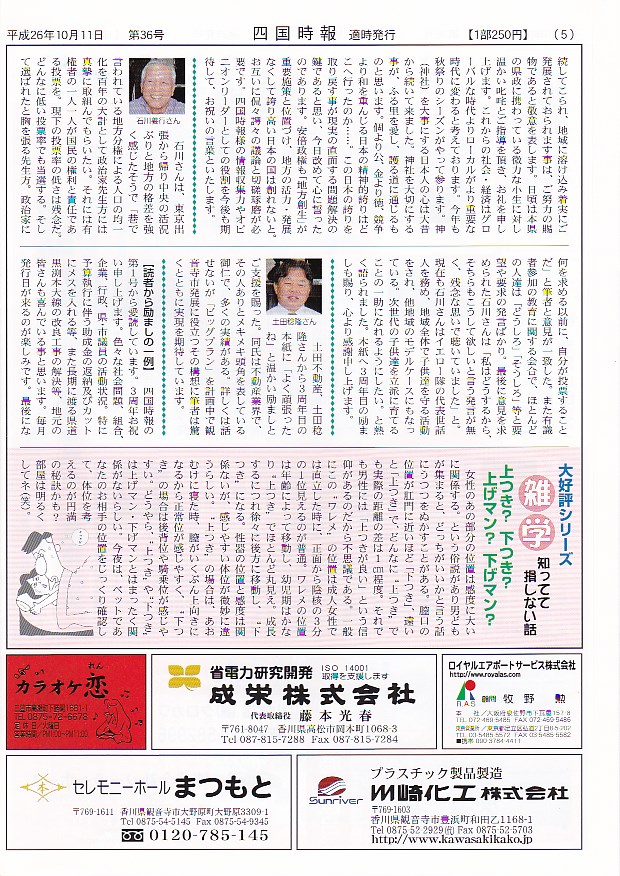 平成26年10月11日　第36号　四国時報　適時発行　【1部250円】（5）
続してこられ、地域に溶け込み着実にご
発展されておられます事は、ご努力の賜
物であると敬意を表します。日頃は本県
の県政に携わっている微力な小生に対し
温かい叱咤とご指導を頂き、お礼を申し
上げます。これからの社会・経済はグロ
ーバルな時代よりローカルがより重要な
時代に変わると考えております。今年も
秋祭りのシーズンがやって参ります。神
（神社）を大事にする日本人の心は大昔
から続いて来ました。神社を大切にする
事が、ふる里を愛し、護る道に通じるも
のと思います。個より公、金より徳、競争
より和を重んじる日本の精神的誇りはど
こへ行ったのか……。この日本の誇りを
取り戻す事が現実の直面する問題解決の
鍵であると思い、今日改めて心に誓った
のであります。安倍政権も「地方創生」が
重要施策と位置づけ、地方の活力・発展
なくして誇り高い日本の国は創れない。
お互いに侃々諤々の議論と切磋琢磨が必
要です。四国時報様の情報収集力やオピ
ニオンリーダーとしての役割を今後も期
待して、お祝いの言葉といたします。
石川豪行さん
石川さんは、東京出
張から帰り中央の活況
ぶりと地方の格差を強
く感じたそうで「巷で
言われている地方分権による人口の均一
化を百年の大計として政治家先生方には
真摯に取組んでもらいたい。それには有
権者の一人一人が国民の権利と責任であ
る投票を。現下の投票率の低さは残念だ。
どんなに低い投票率でも当選する。そし
て選ばれたと胸を張る先生方。政治家に
何を求める以前に、自分が投票すること
だ」と筆者と意見が一致した。また有識
者参加の教育に関する会合で、ほとんど
の人達は「どうしろ」「そうしろ」等と要
望や要求の発言ばかり。最後に意見を求
められた石川さんは「私はどうするから、
そちらもこうして欲しいと言う発言が無
く、残念な思いで聴いていました」と。
現在も石川さんはイエロー隊の代表世話
人を務め、地域全体で子供達を守る活動
をされ、他地域のモデルケースにもなっ
ている。次世代の子供達を立派に育てる
ことの一助になれるようにしたい。と熱
く語られました。本紙へ3周年目の励ま
しも賜り、心より感謝申し上げます。
土田稔隆さん
土田不動産、土田稔
隆さんから3周年目の
本紙に「よく頑張った
ね」と温かい励ましと
ご支援を賜った。同氏は不動産業界で、
その人ありとメキメキ頭角を表している
御仁で、多くの実績がある。詳しくは話
せないが「ビッグプラン」を計画中で観
音寺市発展に役立つその構想に筆者は驚
くとともに実現を期待しています。
【読者から励ましの一例】　四国時報の
第1号から愛読しています。3周年お祝
い申し上げます。色々な社会問題、組合、
企業、行政、県・市議員の活動状況。特に
予算執行に伴う助成金の返納及びカット
にメスを入れる等。また長期に渡る県道
黒渕本大線の改良工事の解決等、地元の
皆さんも喜んでいる事と思います。毎月
発行日が来るのが楽しみです。最後にな
大好評シリーズ
雑学
知ってて
損しない話
上つき？下つき？
上げマン？下げマン？
女性のあの部分の位置は感度に大い
に関係する、という俗説があり男ども
が集まると、どっちがいいかと言う話
にうつつをぬかすことがある。膣口の
位置が肛門に近いほど「下つき」、遠い
と「上つき」で、どんなに“上つき”で
も実際の距離の差は1cm程度。それで
も男性には「上つきが良い」という信
仰があるのだから不思議である。一般
にこの、“ワレメ”の位置は成人女性で
は直立した時に、正面から陰核の3分
の1位見えるのが普通。ワレメの位置
は年齢によって移動し、幼児期はかな
り“上つき”でほとんど丸見え。成長
するにつれ徐々に後方に移動し、“下
つき”になる。性器の位置と感度は関
係ないが、感じやすい体位が微妙に違
うらしい。“上つき”の場合は、あお
むけに寝た時、膣がいくぶん上向きに
なるから正常位が感じやすく、“下つ
き”の場合は後背位や騎乗位が感じや
すい。どうやら、“上つき”や“下つき”
は上げマン・下げマンとはまったく関
係がないらしい。今夜は、ベットであ
なたのお相手の位置をじっくり確認し
て、体位を考
えるのが円満
の秘訣かも？
部屋は明るく
してネ(笑)
カラオケ恋
れん
TEL 0875-73-6678
定休日／火曜日
省電力研究開発　ISO 14001 取得を支援します
成栄株式会社
代表取締役　藤本光春
〒761-8047　香川県高松市岡本町1068-3
Tel 087-815-7288　Fax 087-815-7284
ロイヤルエアポートサービス株式会社
http://www.royalas.com
R.A.S　顧問　牧野　勳
TEL 072-469-5485　FAX 072-469-5486
TEL 03-5485-5572　FAX 03-5485-5582
■携帯 090 3784-4411
セレモニーホール　まつもと
〒769-1611　香川県観音寺市大野原町大野原3309-1
Tel 0875-54-5145　Fax 0875-54-9345
0120-785-145
Sunriver
プラスチック製品製造
川崎化工株式会社
〒769-1603
香川県観音寺市豊浜町和田乙1168-1
Tel 0875-52 2929㈹　Fax 0875-52-5703
http://www.kawasakikako.jp